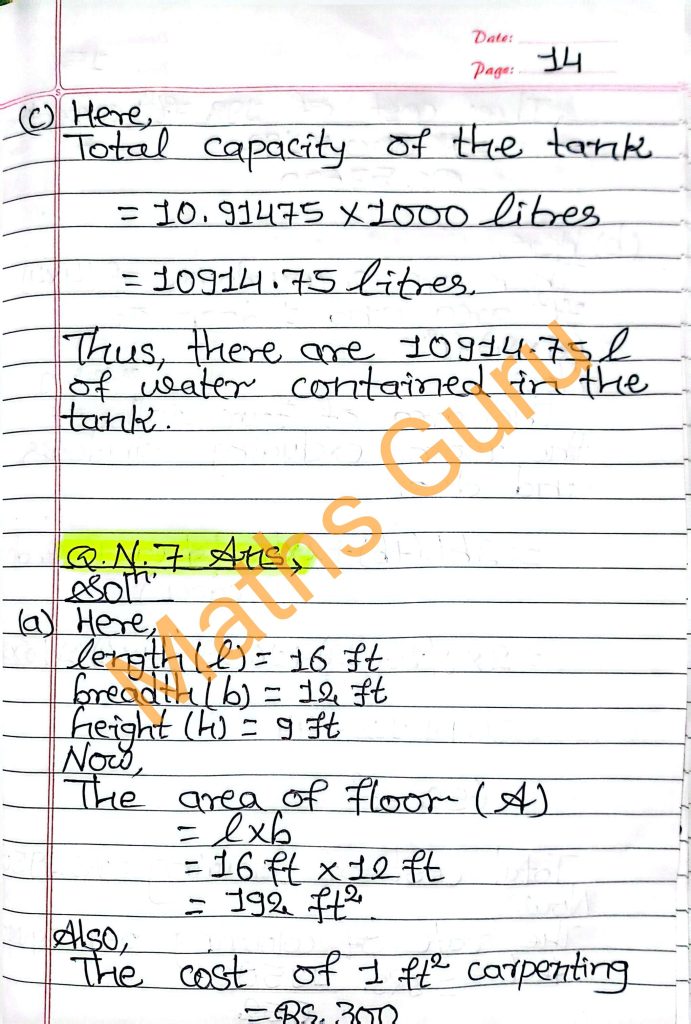 Date:
Page: 14
(c) Here,
Total capacity of the tank
= 10.91475 × 1000 litres
= 10914.75 litres.
Thus, there are 10914.75 l
of water contained in the
tank.
Q.N. 7 Ans,
Solⁿ.
(a) Here,
length (l) = 16 ft
breadth (b) = 12 ft
height (h) = 9 ft
Now,
The area of floor (A)
= l×b
= 16 ft × 12 ft
= 192 ft²
Also,
The cost of 1 ft² carpenting
= Rs. 300
Maths Guru